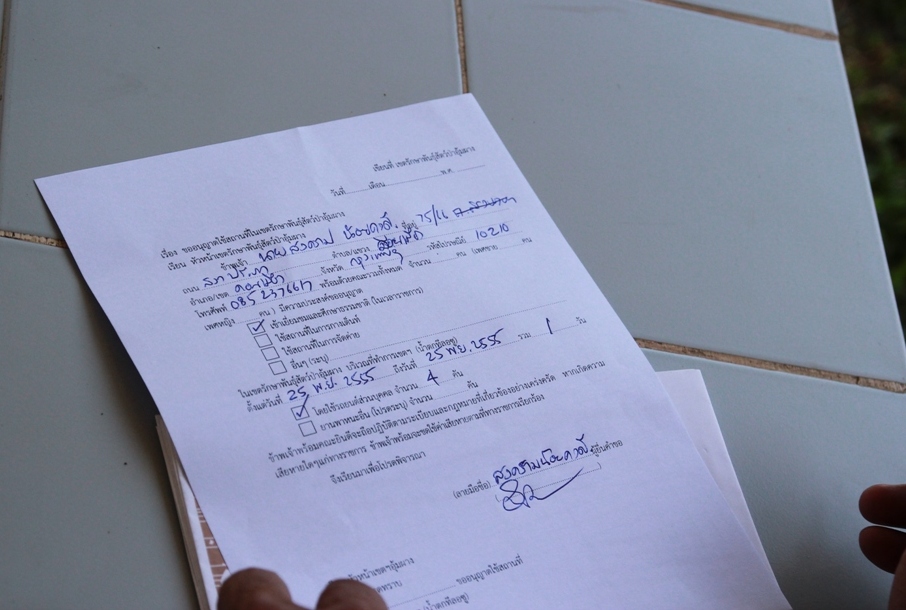 เขียนที่ เขตรักษาพันธุ์สัตว์ป่าอุ้มผาง
วันที่ เดือน พ.ศ.
เรื่อง ขออนุญาตใช้สถานที่ในเขตรักษาพันธุ์สัตว์ป่าอุ้มผาง
เรียน หัวหน้าเขตรักษาพันธุ์สัตว์ป่าอุ้มผาง
ข้าพเจ้า นาย สงคราม น้อยดาด ที่อยู่ 75/66
ถนน ตำบล/แขวง
อำเภอ/เขต ดอนเมือง จังหวัด กรุงเทพฯ รหัสไปรษณีย์ 10210
โทรศัพท์ พร้อมด้วยคณะรวมทั้งหมด จำนวน คน (เพศชาย คน
เพศหญิง คน ) มีความประสงค์ขออนุญาต
เข้าเยี่ยมชมและศึกษาธรรมชาติ (ในเวลาราชการ)
ใช้สถานที่ในการกางเต็นท์
ใช้สถานที่ในการจัดค่าย
อื่นๆ (ระบุ)
ในเขตรักษาพันธุ์สัตว์ป่าอุ้มผาง บริเวณที่ทำการเขตฯ (น้ำตกทีลอซู)
ตั้งแต่วันที่ 25 พ.ย. 2555 ถึงวันที่ 25 พย. 2555 รวม 1 วัน
โดยใช้รถยนต์ส่วนบุคคล จำนวน 4 คัน
ยานพาหนะอื่น (โปรดระบุ) จำนวน คัน
ข้าพเจ้าพร้อมคณะยินดีจะถือปฏิบัติตามระเบียบและกฎหมายที่เกี่ยวข้องอย่างเคร่งครัด หากเกิดความ
เสียหายใดๆแก่ทางราชการ ข้าพเจ้าพร้อมจะชดใช้ค่าเสียหายตามที่ทางราชการเรียกร้อง
จึงเรียนมาเพื่อโปรดพิจารณา
(ลายมือชื่อ) ผู้ยื่นคำขอ
หัวหน้าเขตฯอุ้มผาง
ขออนุญาตใช้สถานที่
(น้ำตกทีลอซู)